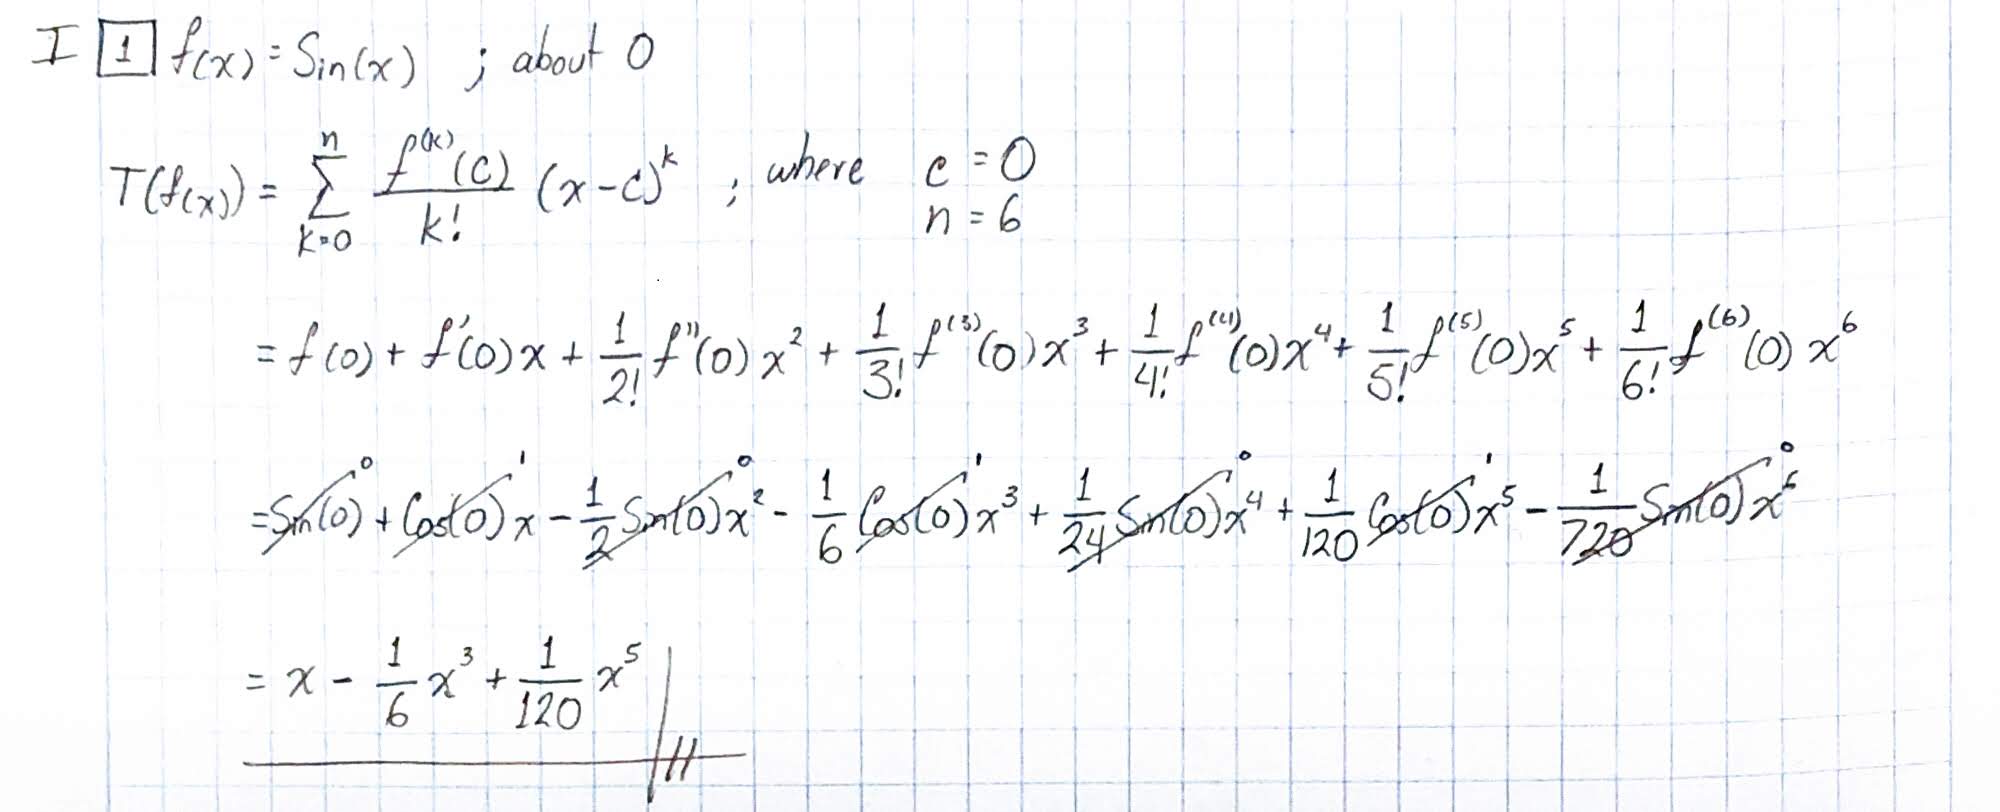 I 1 f(x) = Sin(x) ; about 0
T(f(x)) = \sum_{k=0}^{n} \frac{f^{(k)}(c)}{k!} (x-c)^k ; where c = 0
n = 6
= f(0) + f'(0)x + \frac{1}{2!} f''(0) x^2 + \frac{1}{3!} f^{(3)}(0) x^3 + \frac{1}{4!} f^{(4)}(0) x^4 + \frac{1}{5!} f^{(5)}(0) x^5 + \frac{1}{6!} f^{(6)}(0) x^6
= \cancel{Sin(0)}^0 + \cancel{Cos(0)}^1 x - \cancel{\frac{1}{2} Sin(0)}^0 x^2 - \frac{1}{6} \cancel{Cos(0)}^1 x^3 + \cancel{\frac{1}{24} Sin(0)}^0 x^4 + \frac{1}{120} \cancel{Cos(0)}^1 x^5 - \cancel{\frac{1}{720} Sin(0)}^0 x^6
= x - \frac{1}{6} x^3 + \frac{1}{120} x^5